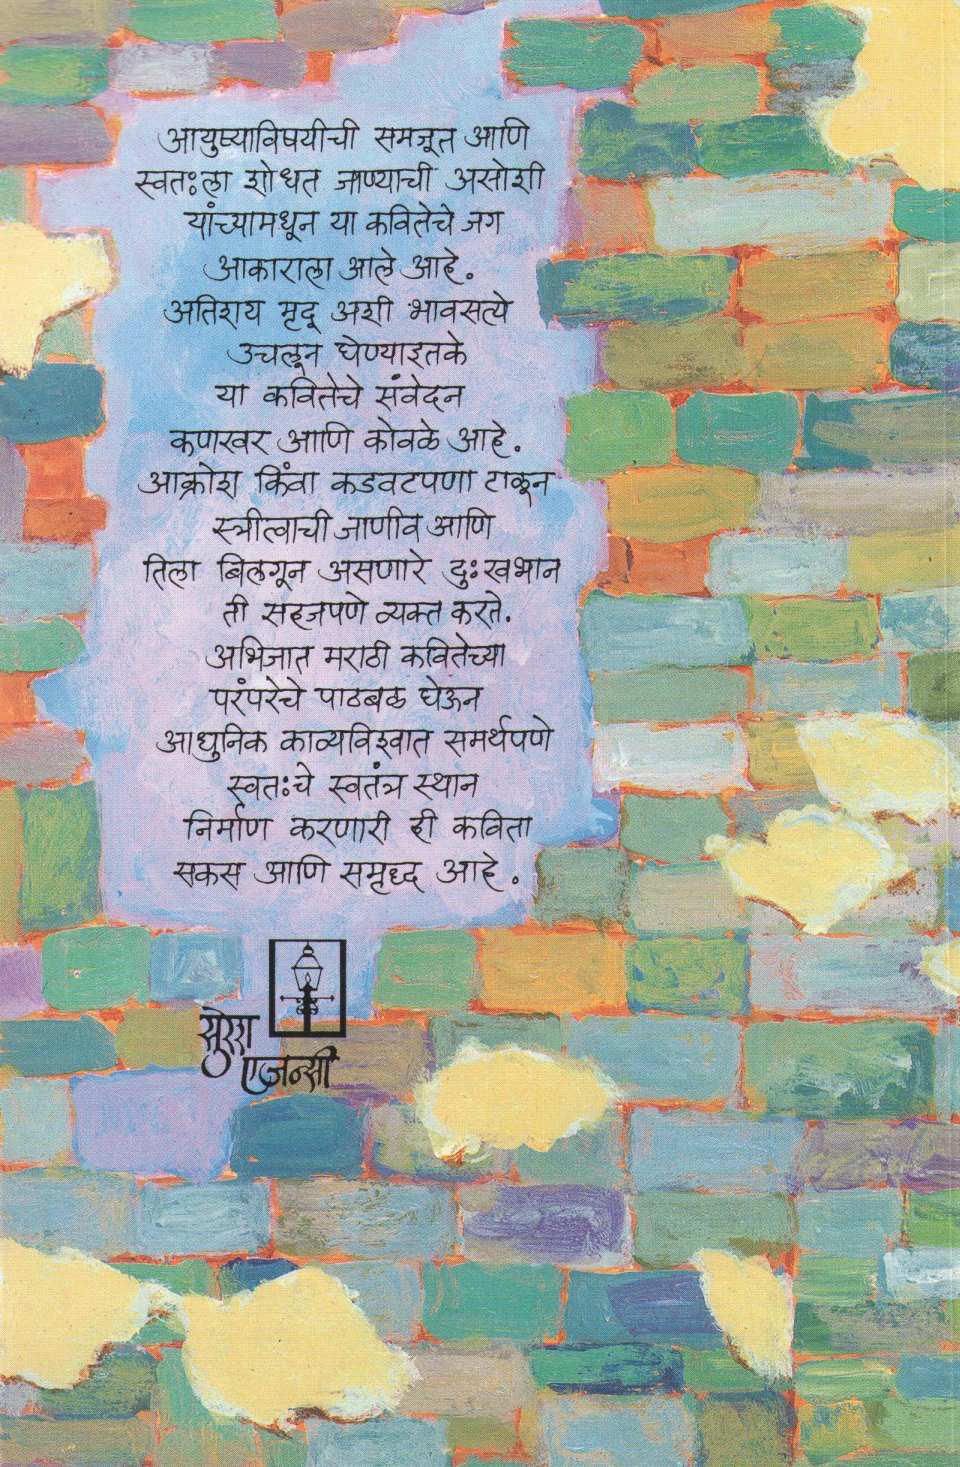 आयुष्याविषयीची समजूत आणि
स्वतःला शोधत जाण्याची असोशी
यांच्यामधून या कवितेचे जग
आकाराला आले आहे.
अतिशय मृदू अशी भावसत्ये
उचलून घेण्याइतके
या कवितेचे संवेदन
कणखर आणि कोवळे आहे.
आक्रोश किंवा कडवटपणा टाळून
स्त्रीत्वाची जाणीव आणि
तिला बिलगून असणारे दुःखभान
ती सहजपणे व्यक्त करते.
अभिजात मराठी कवितेच्या
परंपरेचे पाठबळ घेऊन
आधुनिक काव्यविश्वात समर्थपणे
स्वतःचे स्वतंत्र स्थान
निर्माण करणारी ही कविता
सकस आणि समृध्द आहे.
सुरेश
एजन्सी